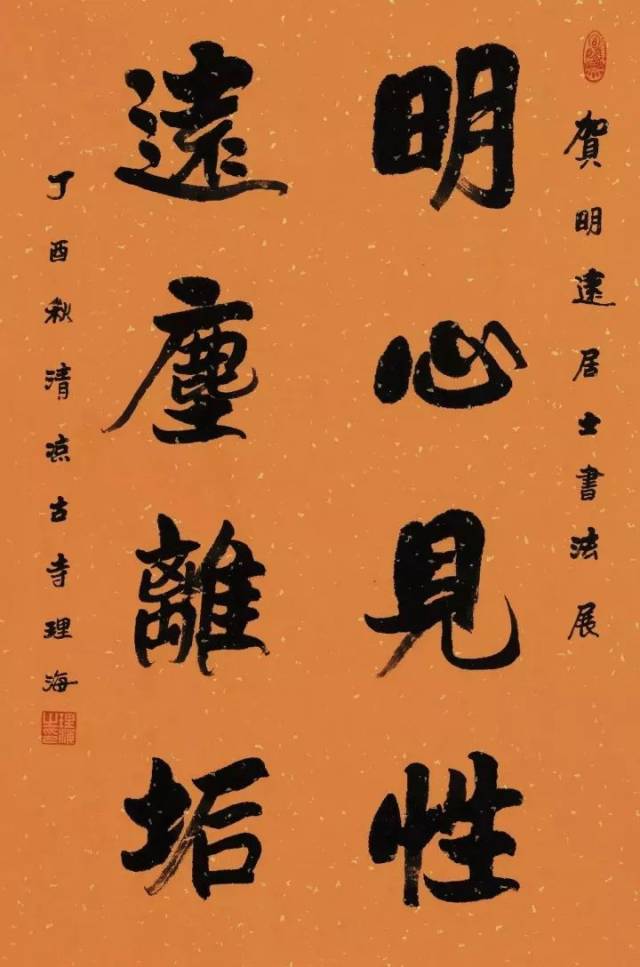 賀明遠居士書法展
明心見性
遠塵離垢
丁酉秋清涼古寺理海